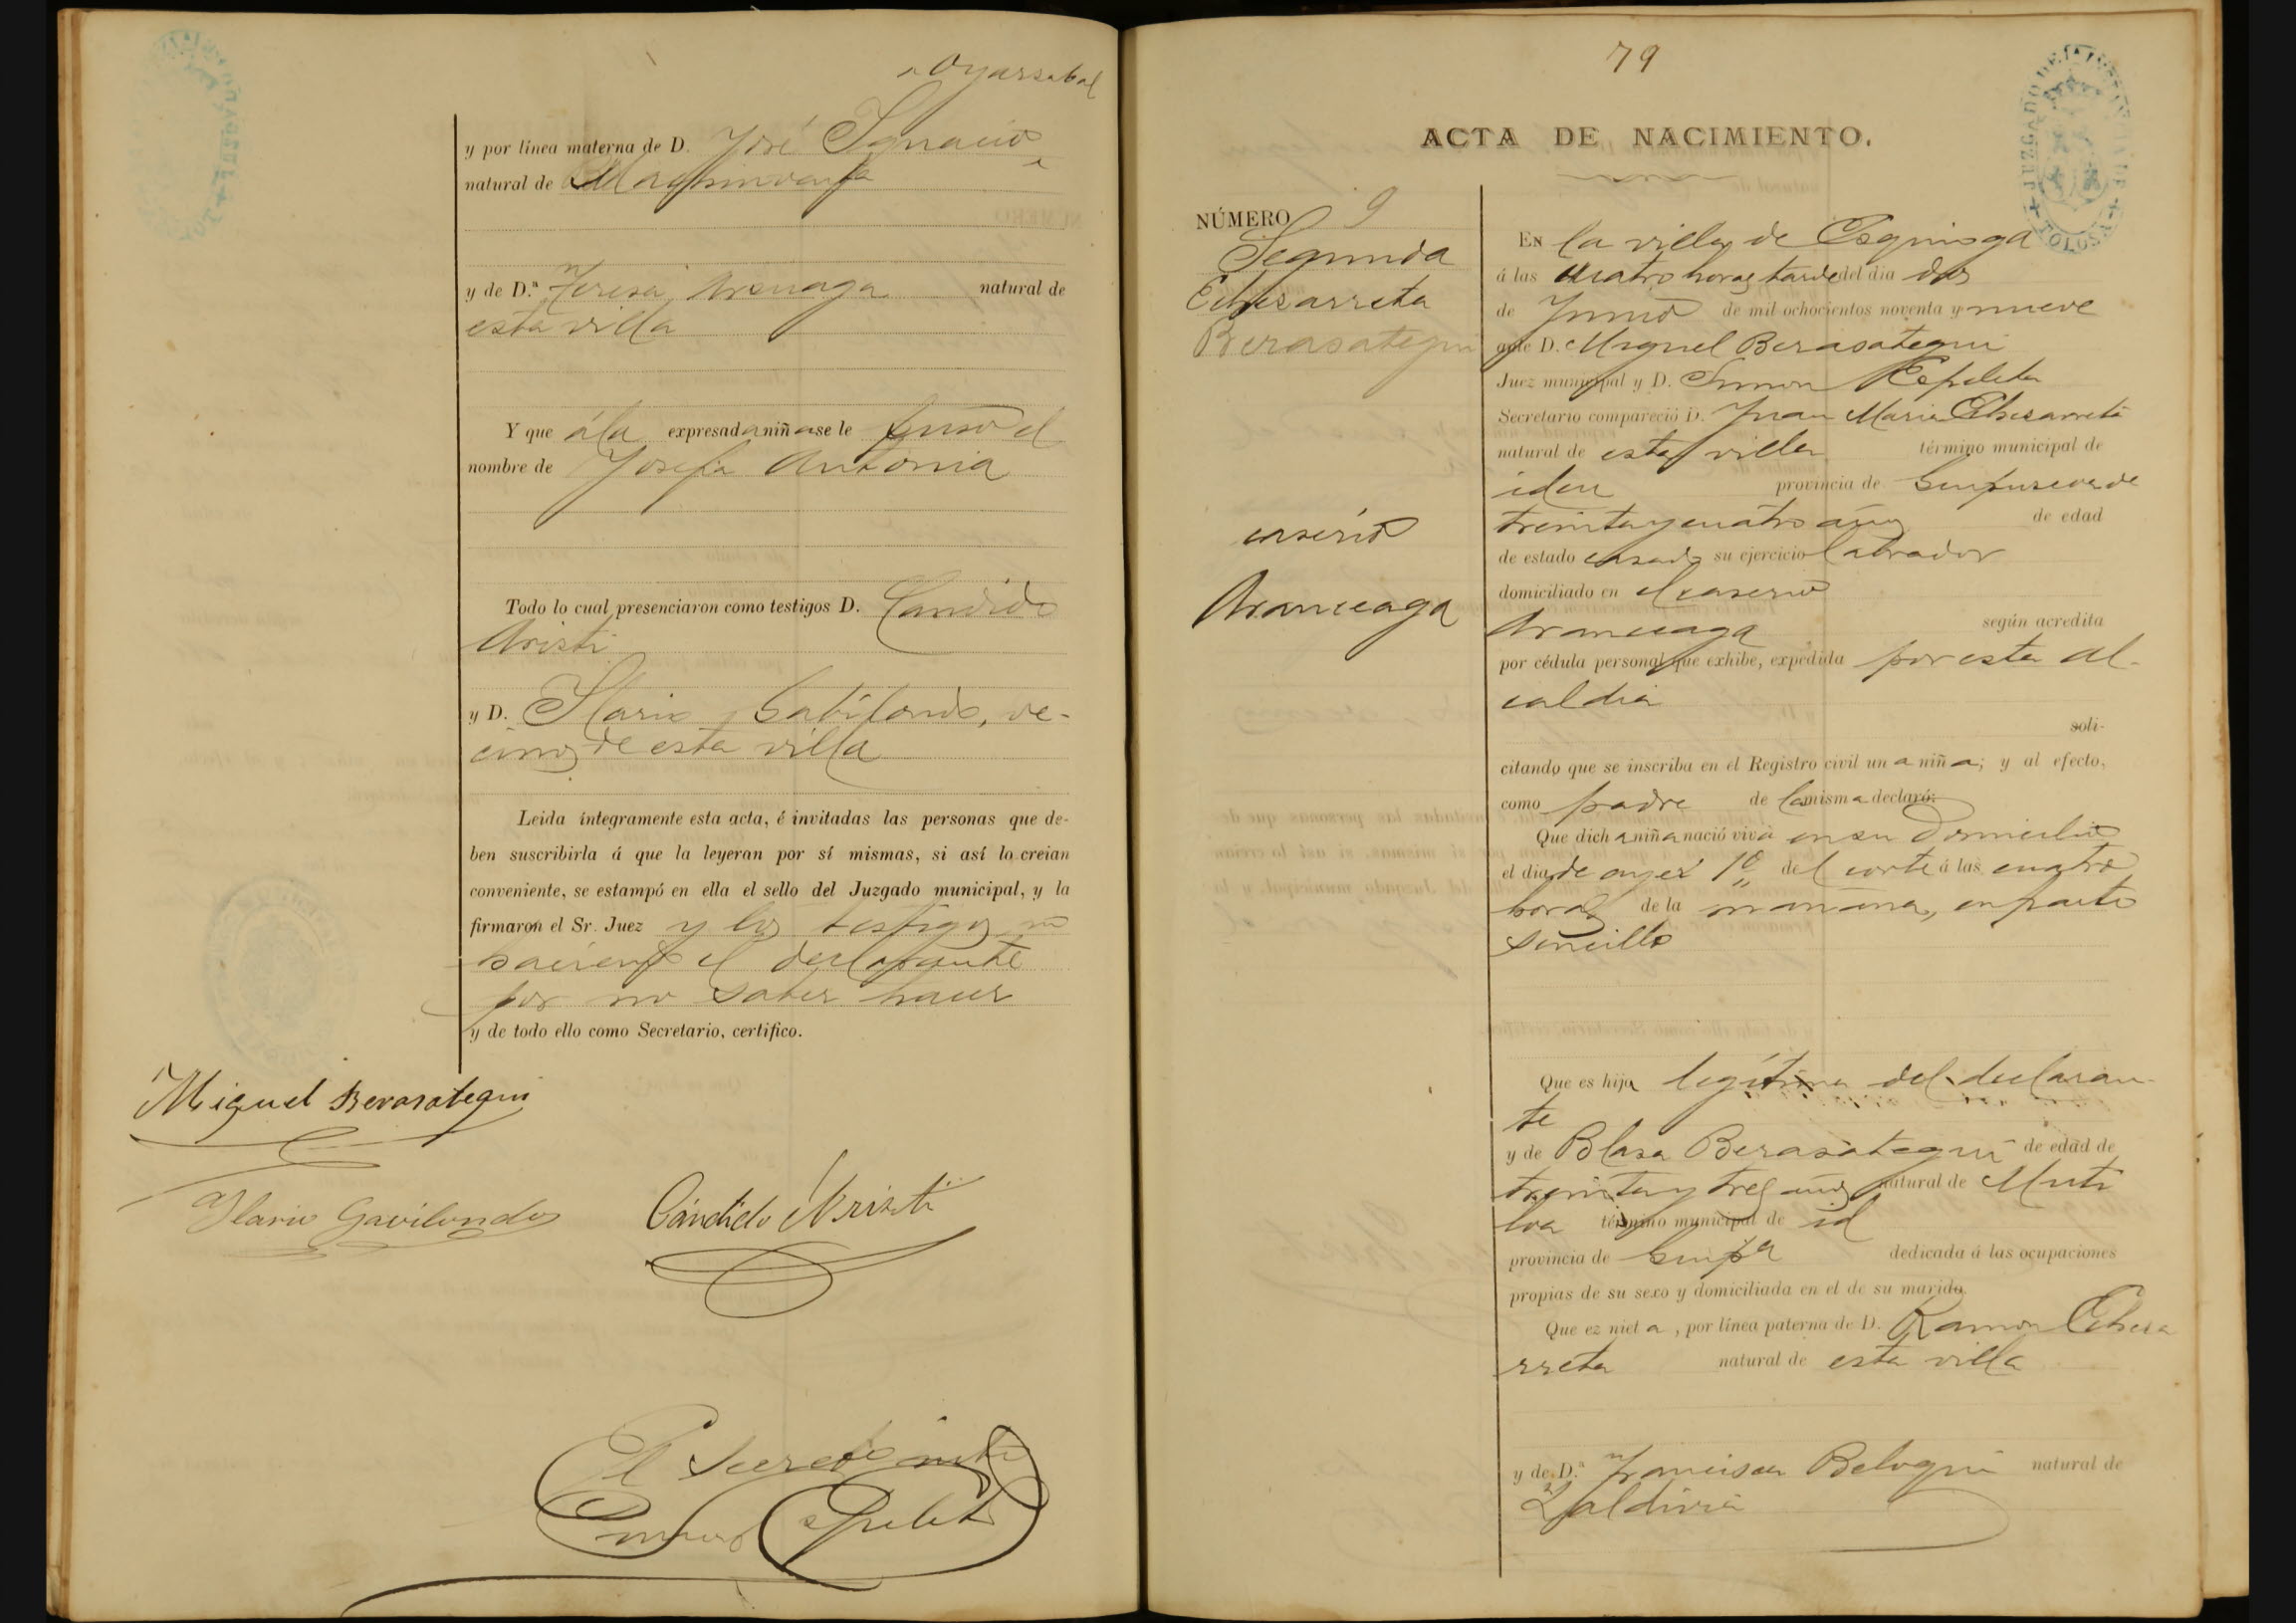 Oyarzabal
y por línea materna de D. José Ignacio
natural de
y de D.ª Teresa Arsuaga natural de
esta villa
Y que á la expresada niña se le puso el
nombre de Josefa Antonia
Todo lo cual presenciaron como testigos D. Candido
Aristi
y D. Ilario Gabilondo, ve-
cinos de esta villa
Leida íntegramente esta acta, é invitadas las personas que de-
ben suscribirla á que la leyeran por sí mismas, si así lo creian
conveniente, se estampó en ella el sello del Juzgado municipal, y la
firmaron el Sr. Juez y los testigos no
haciendo el declarante
por no saber hacer
y de todo ello como Secretario, certifico.
Miguel Berasategui
Ilario Gavilondo Cándido Aristi
El Secretario
79
JUZGADO DE TOLOSA
ACTA DE NACIMIENTO.
NÚMERO 9
Segunda
Echezarreta
Berasategui
caserio
Aranceaga
En la villa de Ezquioga
á las cuatro horas tarde del dia dos
de Junio de mil ochocientos noventa y nueve
ante D. Miguel Berasategui
Juez municipal y D. Simon Ezpeleta
Secretario compareció D. Juan Maria Echezarreta
natural de esta villa término municipal de
idem provincia de Guipuzcoa de
treinta y cuatro años de edad
de estado casado su ejercicio labrador
domiciliado en el caserio
Aranceaga según acredita
por cédula personal que exhibe, expedida por esta al-
caldia
soli-
citando que se inscriba en el Registro civil una niña; y al efecto,
como padre de la misma declaró:
Que dicha niña nació viva en su domicilio
el dia de ayer 1º del corte á las cuatro
horas de la mañana, en parto
sencillo
Que es hija legítima del declaran-
te
y de Blasa Berasategui de edad de
treinta y tres años natural de Muti
loa término municipal de id
provincia de Guipª dedicada á las ocupaciones
propias de su sexo y domiciliada en el de su marido.
Que ez nieta, por línea paterna de D. Ramon Echeza
rreta natural de esta villa
y de D.ª Francisca Beloqui natural de
Zaldivia